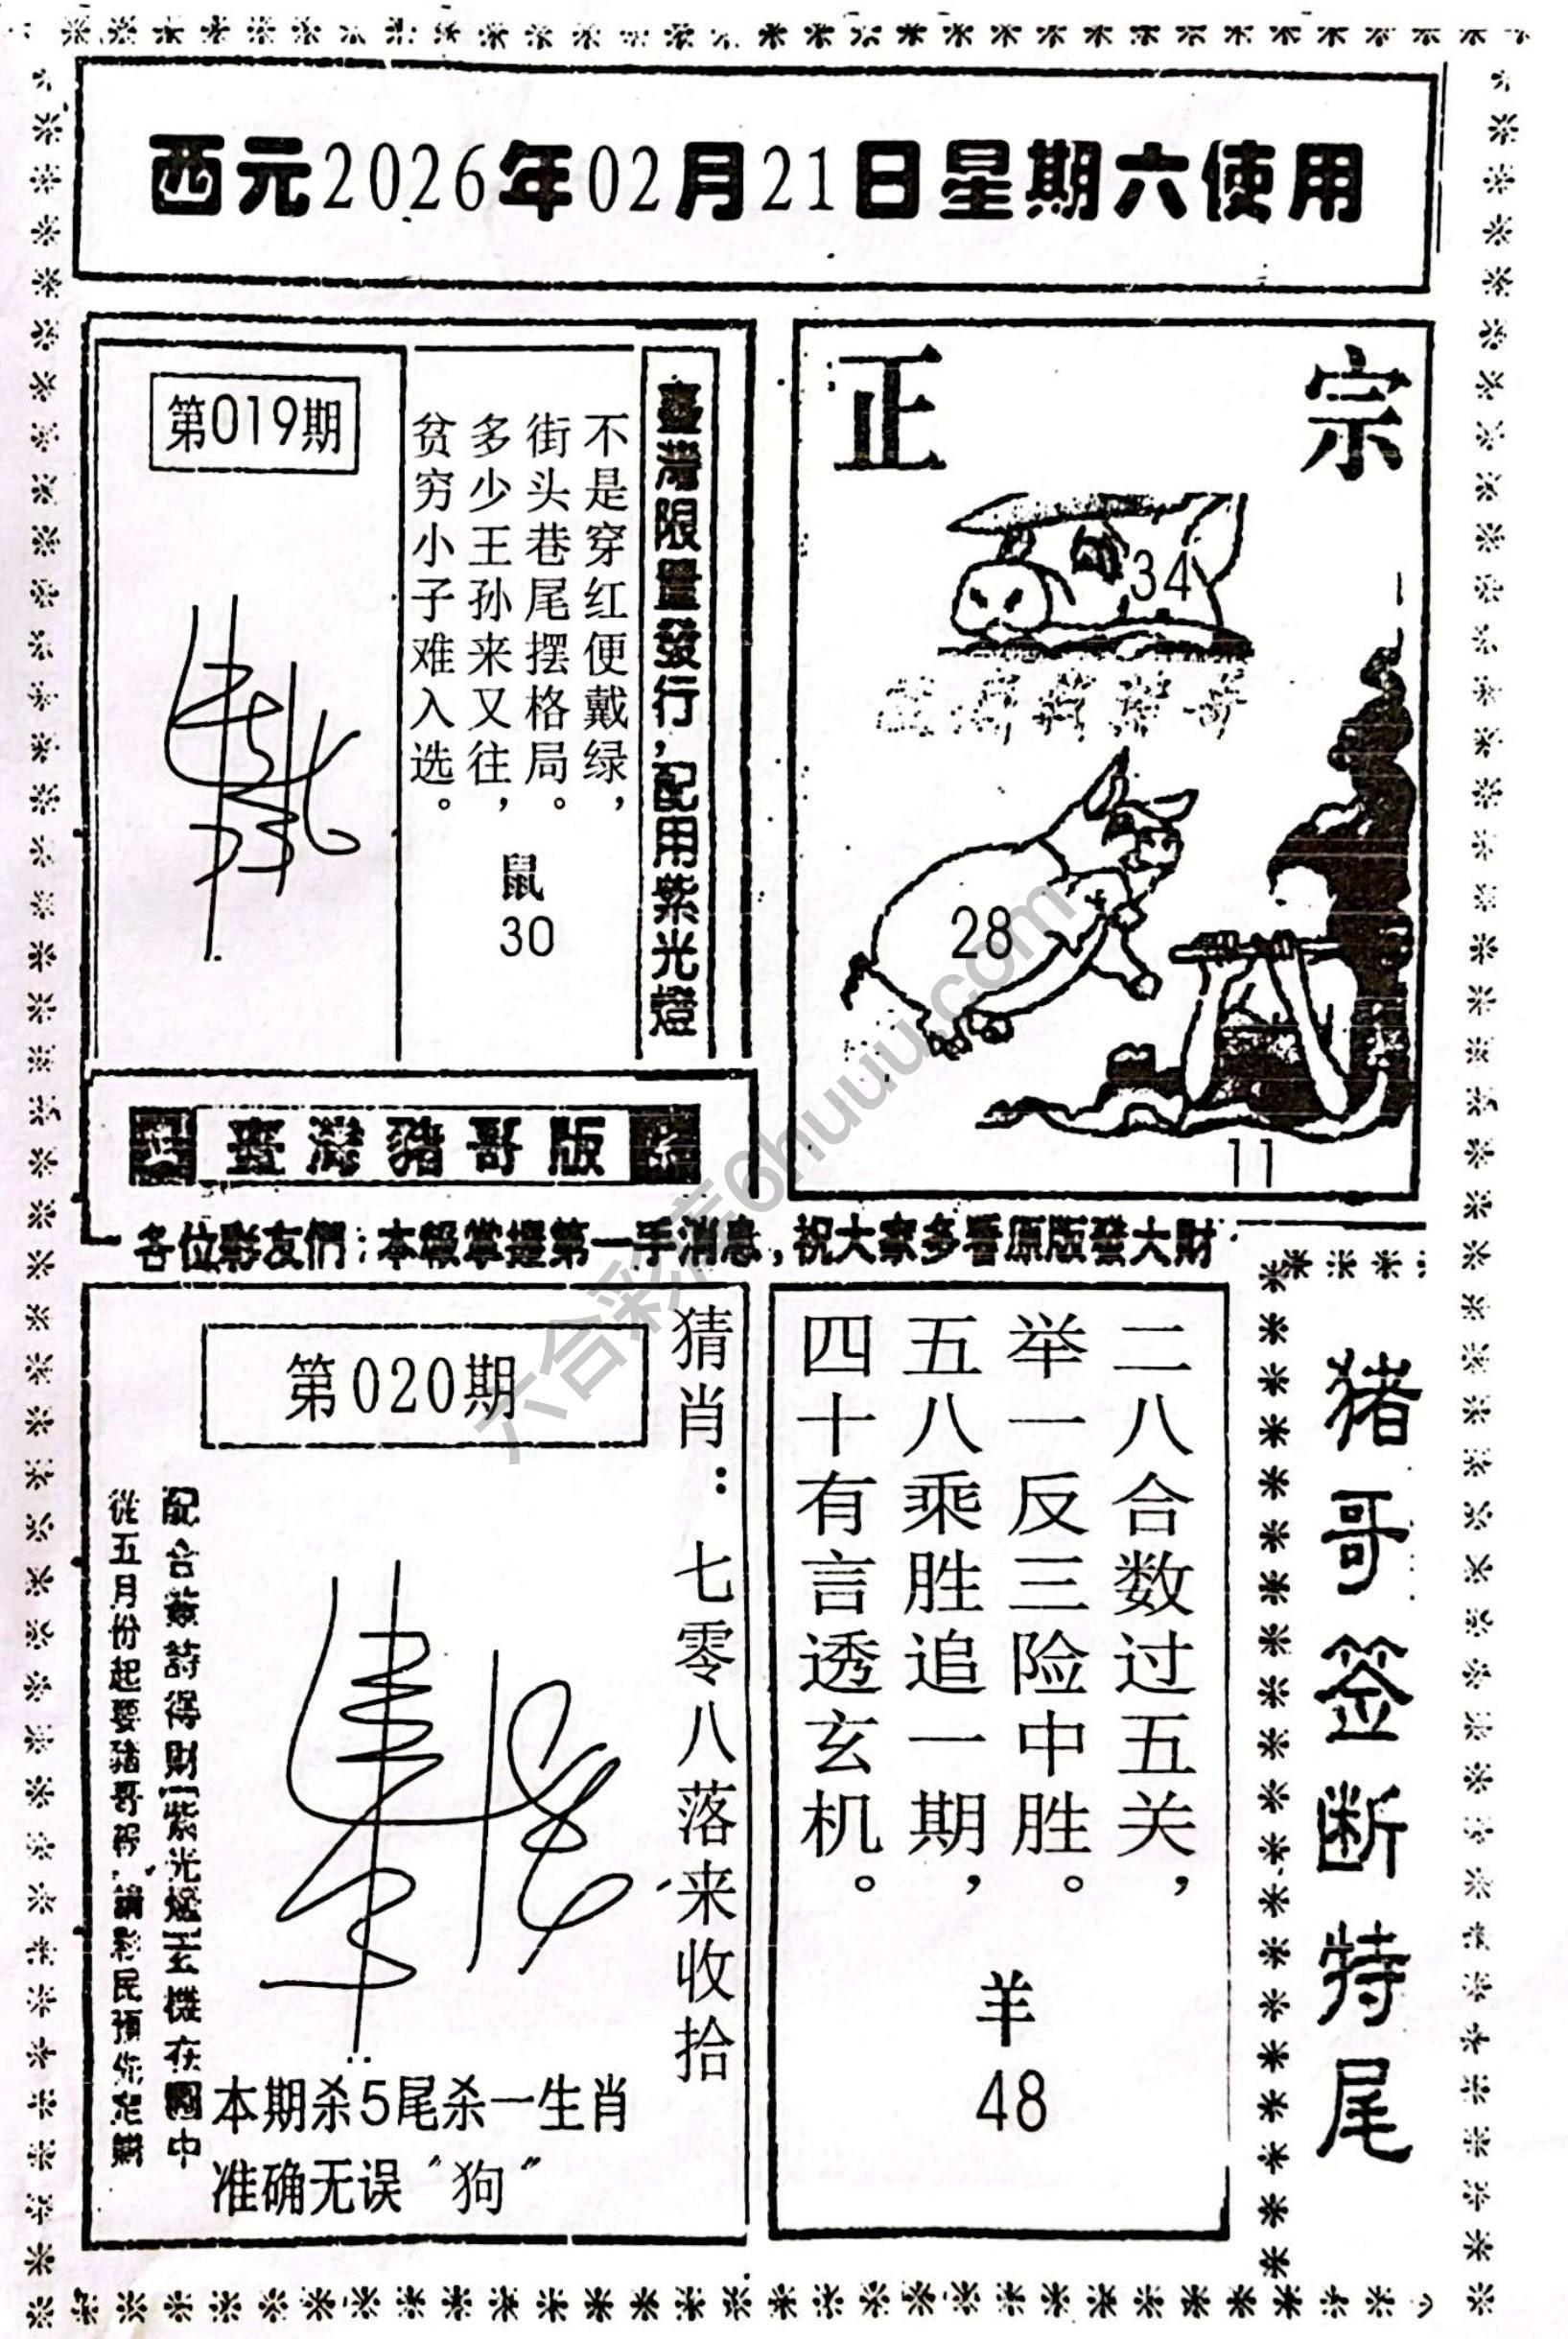 西元2026年02月21日星期六使用
第019期
臺灣限量發行,配用紫光燈
不是穿红便戴绿,
街头巷尾摆格局。
多少王孙来又往,
贫穷小子难入选。
鼠
30
正宗
34
28
11
臺灣豬哥版
各位彩友們:本報掌握第一手消息,祝大家多看原版發大財
第020期
猜肖:七零八落来收拾
配合籤詩得財[紫光燈]玄機在圖中
從五月份起要豬哥
本期杀5尾杀一生肖
准确无误“狗”
二八合数过五关,
举一反三险中胜。
五八乘胜追一期,
四十有言透玄机。
羊
48
猪哥签断特尾
六合彩库6huuu.com